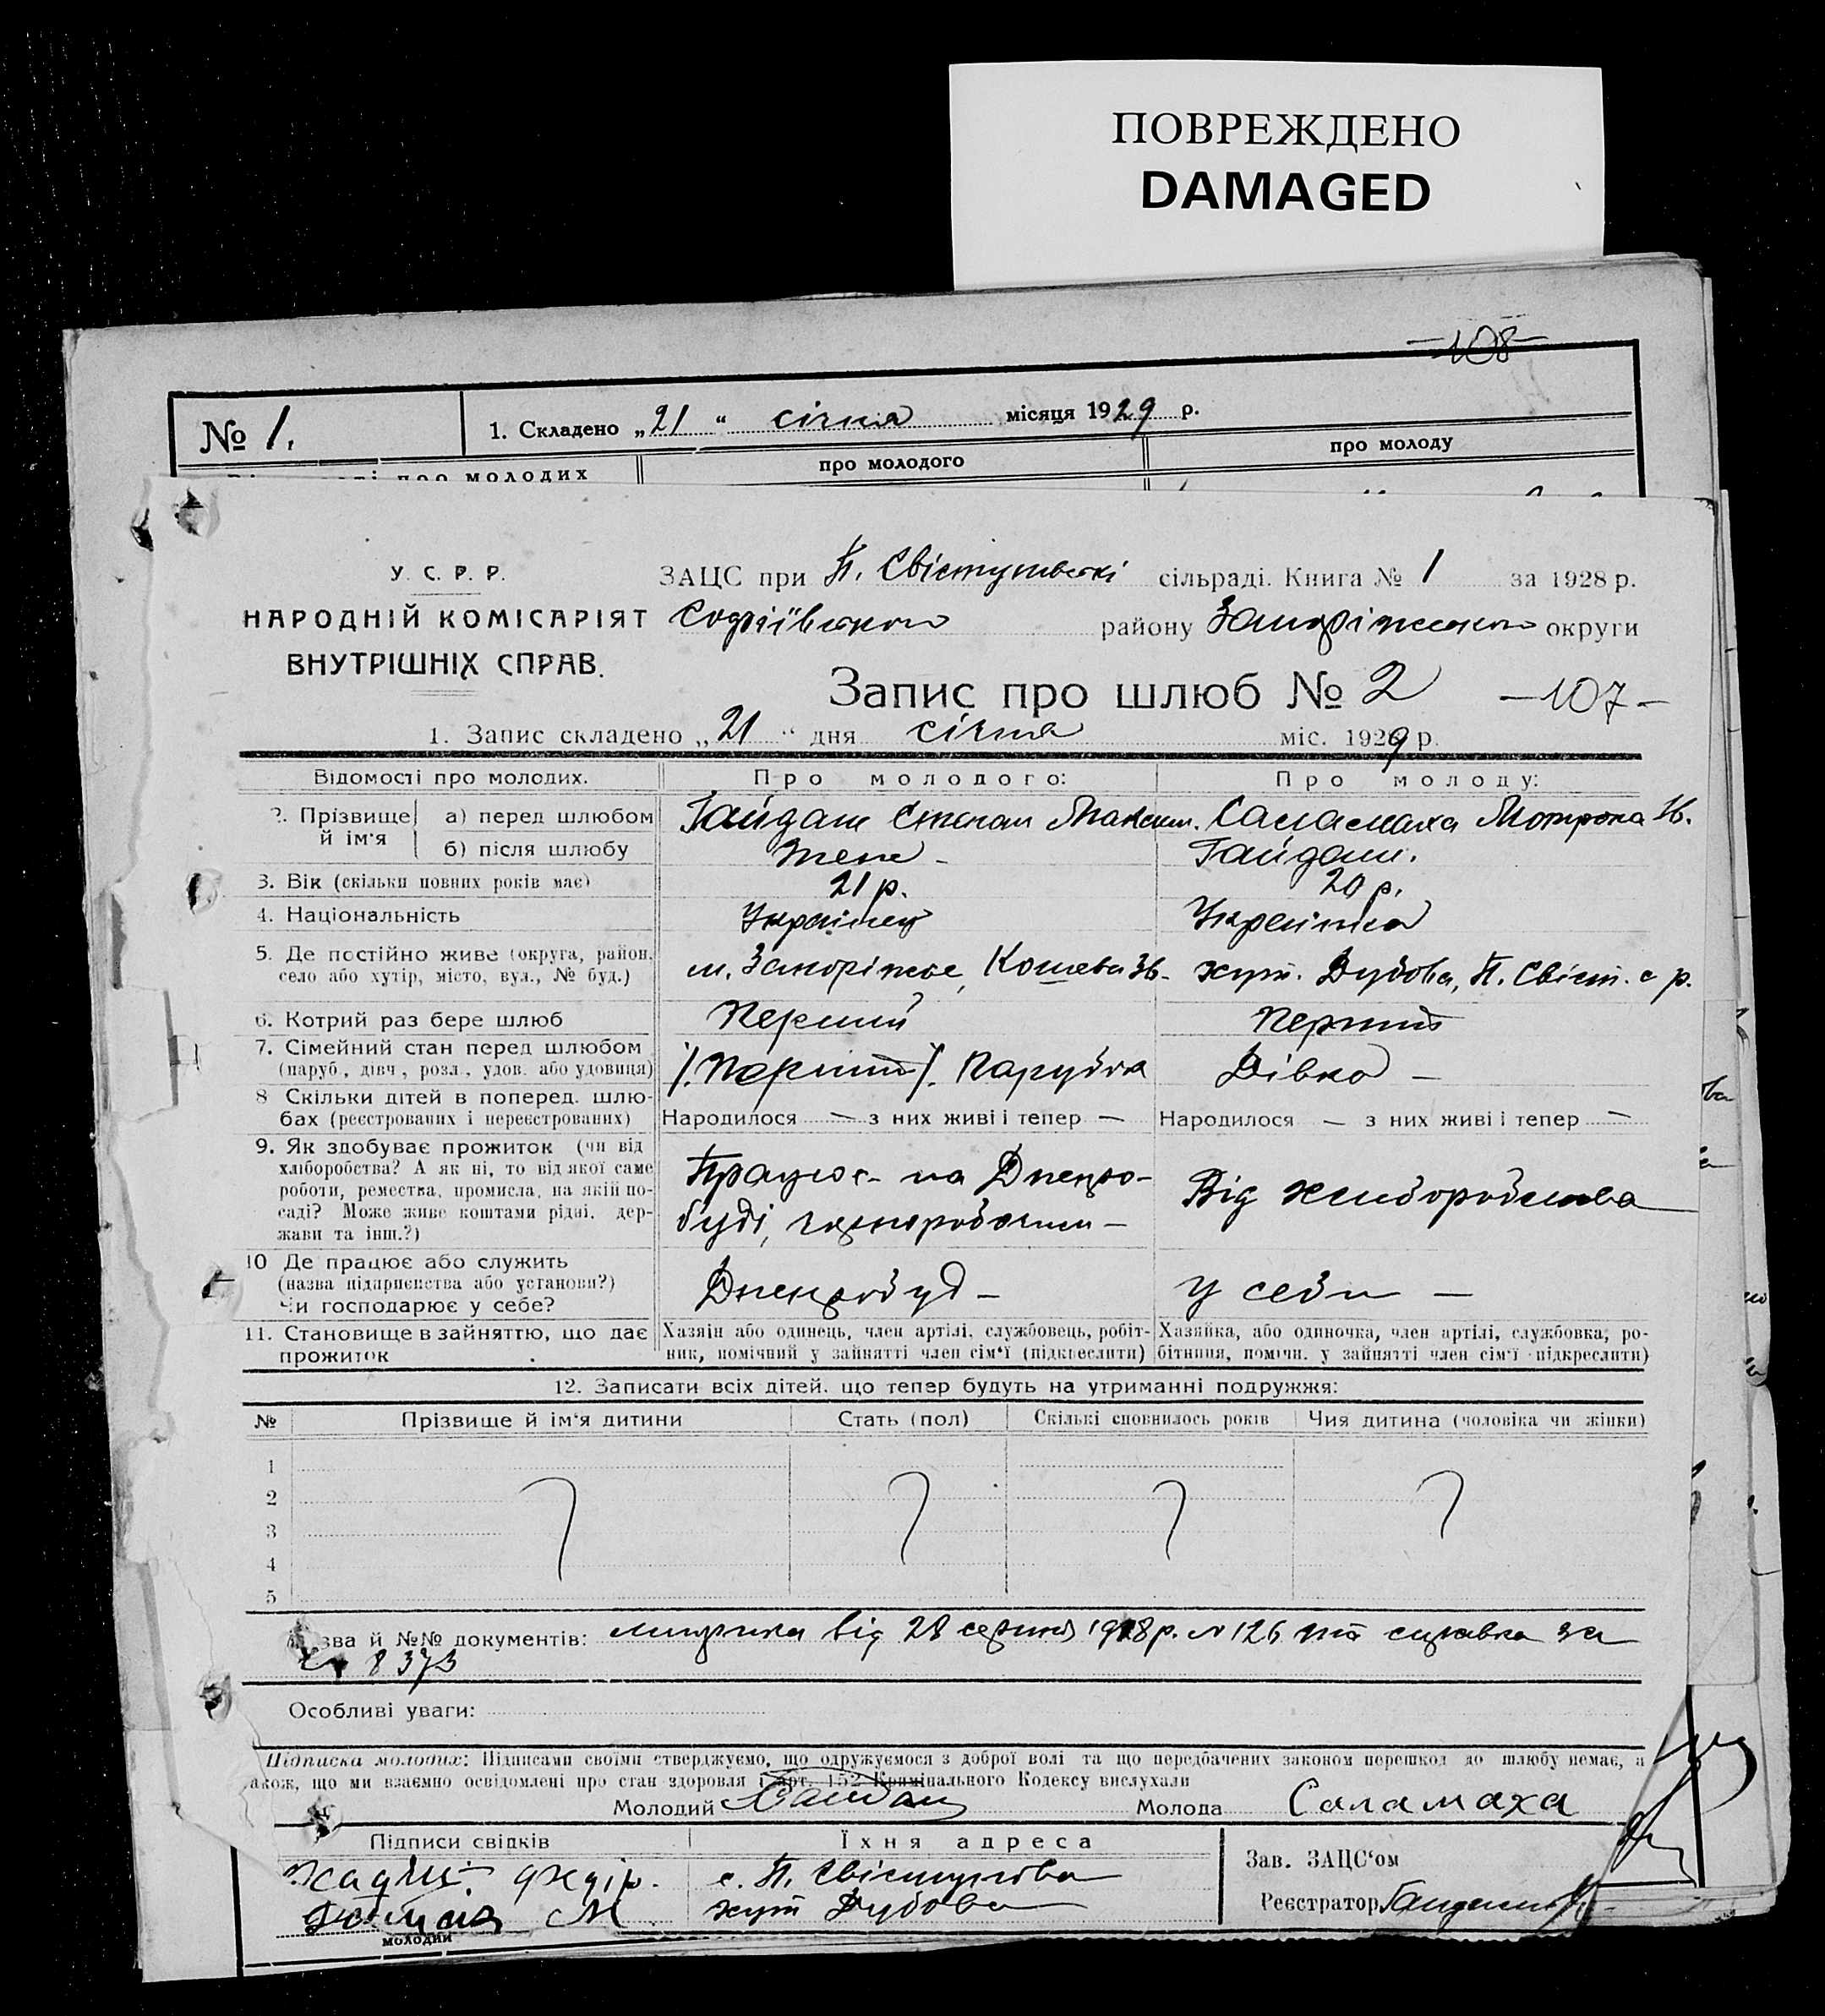 ПОВРЕЖДЕНО
DAMAGED
—108—
№ 1. 1. Складено „21“ січня місяця 1929 р.
про молодих про молодого про молоду
У. С. Р. Р. ЗАЦС при П. Свістунівські сільраді. Книга № 1 за 1928 р.
НАРОДНІЙ КОМІСАРІЯТ Софіївського району Запоріжського округи
ВНУТРІШНІХ СПРАВ.
Запис про шлюб № 2 —107—
1. Запис складено „21“ дня січня міс. 1929 р.
Відомості про молодих. Про молодого: Про молоду:
2. Прізвище й ім'я а) перед шлюбом Гайдаш Степан Максим. Саламаха Мотрона Ів.
б) після шлюбу теж — Гайдаш.
3. Вік (скільки повних років має) 21 р. 20 р.
4. Національність Українец Українка
5. Де постійно живе (округа, район, село або хутір, місто, вул., № буд.) м. Запоріжжє, Кошева 36- хут. Дубова, П. Свіст. с р.
6. Котрий раз бере шлюб Перший Перший
7. Сімейний стан перед шлюбом (паруб., дівч., розл., удов. або удовиця) /. Перший /. Парубок Дівка —
8 Скільки дітей в поперед. шлюбах (реєстрованих і нереєстрованих) Народилося — з них живі і тепер — Народилося — з них живі і тепер —
9. Як здобуває прожиток (чи від хліборобства? А як ні, то від якої саме роботи, ремества, промисла, на якій посаді? Може живе коштами рідні, держави та інш.?) Працює на Днепро-
буді, чорноробочим — Від хліборобства
10 Де працює або служить (назва підприємства або установи?) Чи господарює у себе? Днепробуд — у себе —
11. Становище в зайняттю, що дає прожиток Хазяін або одинець, член артілі, службовець, робітник, помічний у зайнятті член сім'ї (підкреслити) Хазяйка, або одиночка, член артілі, службовка, робітниця, помічн. у зайнятті член сім'ї підкреслити)
12. Записати всіх дітей. що тепер будуть на утриманні подружжя:
№ Прізвище й ім'я дитини Стать (пол) Скількі сповнилось років Чия дитина (чоловіка чи жінки)
1
2
3
4
5
зва й №№ документів: від 28 серпня 1928 р. № 126 та справка за
8373
Особливі уваги:
Підписка молодих: Підписами своїми стверджуємо, що одружуємося з доброї волі та що передбачених законом перешкод до шлюбу немає, а
акож, що ми взаємно освідомлені про стан здоровля і арт. 152 Кримінального Кодексу вислухали
Молодий Гайдаш Молода Саламаха
Підписи свідків Їхня адреса Зав. ЗАЦС'ом
с. П. Свістунова
хут Дубова Реєстратор
молодий